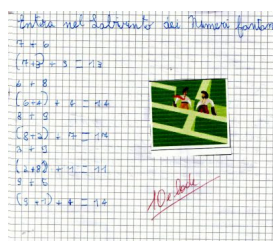 Entra nel Labirinto dei Numeri fantasm
7 + 6
(7+3) + 3 = 13
6 + 8
(6+4) + 4 = 14
8 + 9
(8+2) + 7 = 17
3 + 9
(2+8) + 1 = 11
9 + 5
(9+1) + 4 = 14
10 e lode